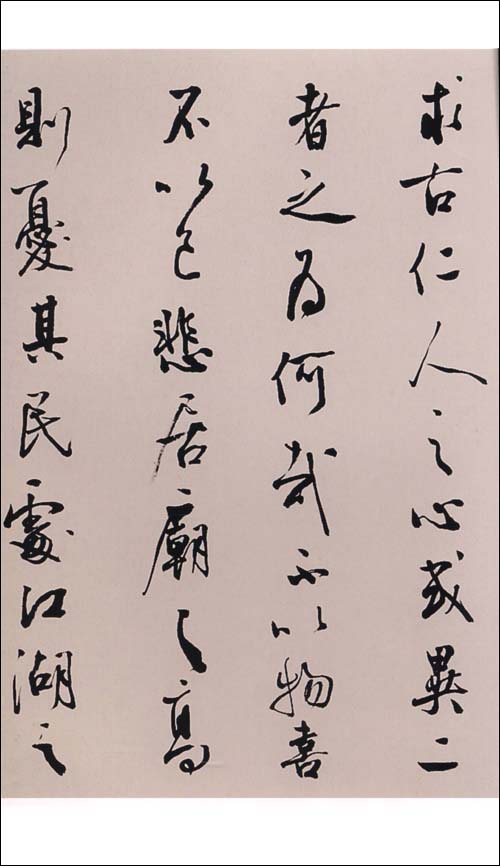 求古仁人之心或異二
者之為何哉不以物喜
不以己悲居廟之高
則憂其民處江湖之